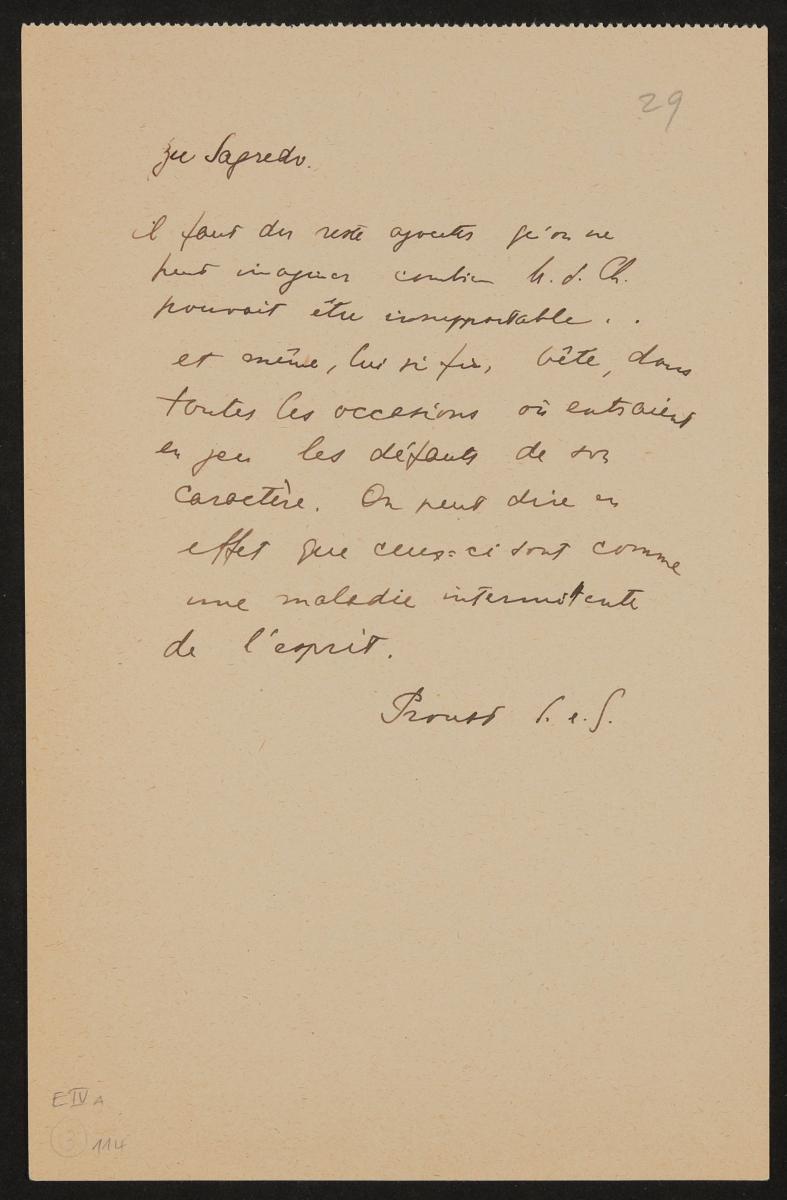 29
zu Sagredo.
il faut du reste ajouter qu'on ne
peut imaginer combien M. d. Ch.
pouvait être insupportable . .
et même, lui si fin, bête, dans
toutes les occasions où entraient
en jeu les défauts de son
caractère. On peut dire en
effet que ceux-ci sont comme
une maladie intermittente
de l'esprit.
Proust S. e. G.
E IV A
3 114